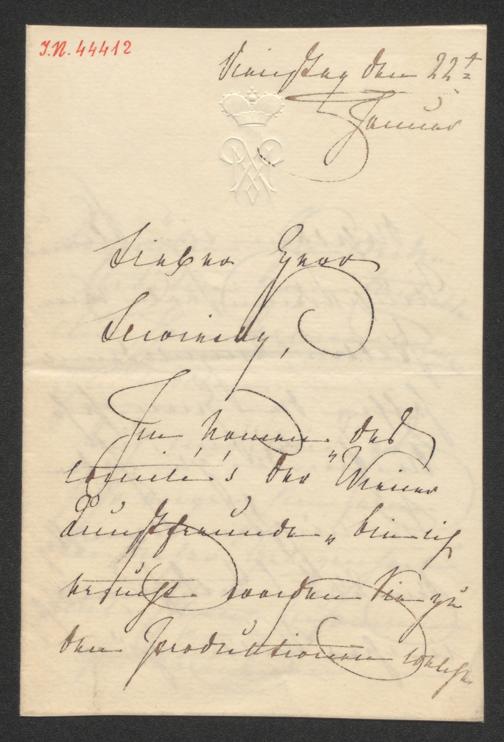 I.N. 44412
Dienstag den 22t
Januar
Lieber Herr
Lewinsky,
Im Namen des
Comité's der "Wiener
Kunstfreunde" bin ich
ersucht worden Sie zu
den Produktionen welche